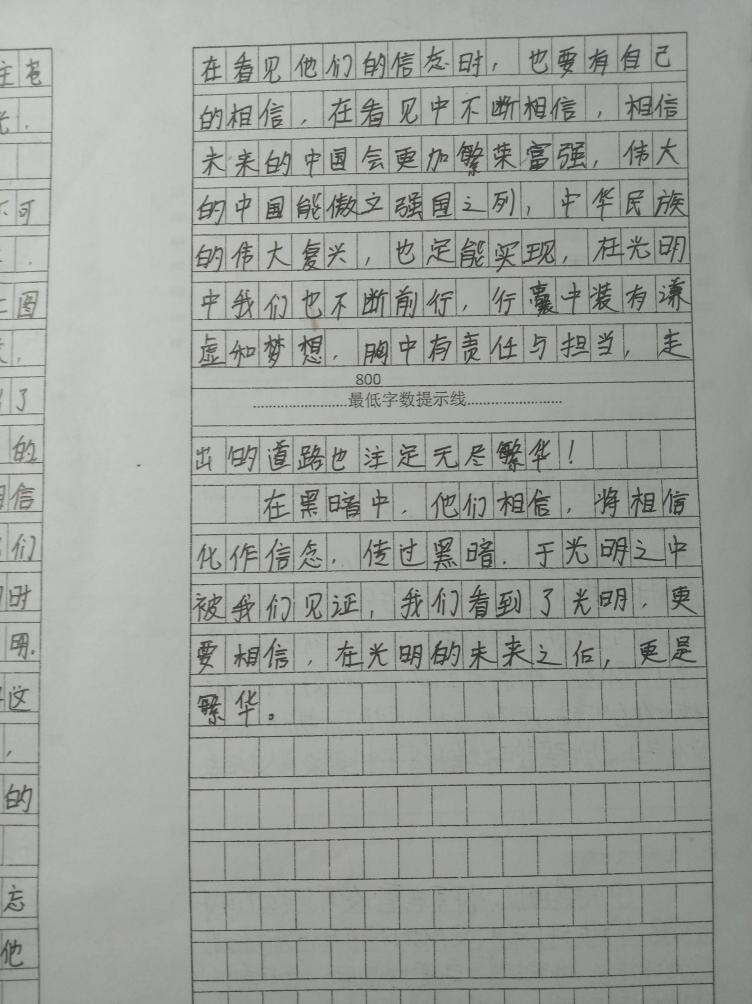 主老
光.
不可
.
上图
,
了
的
相信
们
时
明.
这
,
的
忘
他
在看见他们的信念时，也要有自己
的相信，在看见中不断相信，相信
未来的中国会更加繁荣富强，伟大
的中国能傲立强国之列，中华民族
的伟大复兴，也定能实现，在光明
中我们也不断前行，行囊中装有谦
虚和梦想．胸中有责任与担当，走
800
........................最低字数提示线........................
出的道路也注定无尽繁华！
在黑暗中．他们相信．将相信
化作信念．传过黑暗．于光明之中
被我们见证，我们看到了光明．更
要相信，在光明的未来之后，更是
繁华。